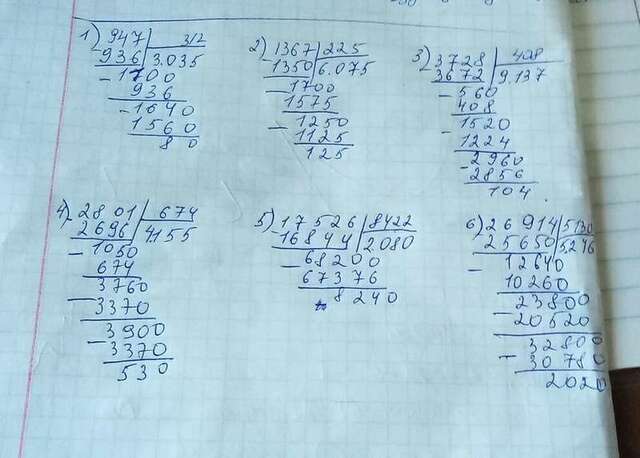 1) 947 312
936 3.035
- 1700
936
- 1640
1560
80
2) 1367 225
1350 6.075
- 1700
1575
- 1250
1125
125
3) 3728 408
3672 9.137
- 560
408
- 1520
1224
- 2960
2856
104
4) 2801 674
2696 4.155
- 1050
674
- 3760
3370
- 3900
3370
530
5) 17526 8422
16844 2.080
- 68200
67376
8240
6) 26914 5130
25650 5.246
- 12640
10260
- 23800
20520
- 32800
30780
2020